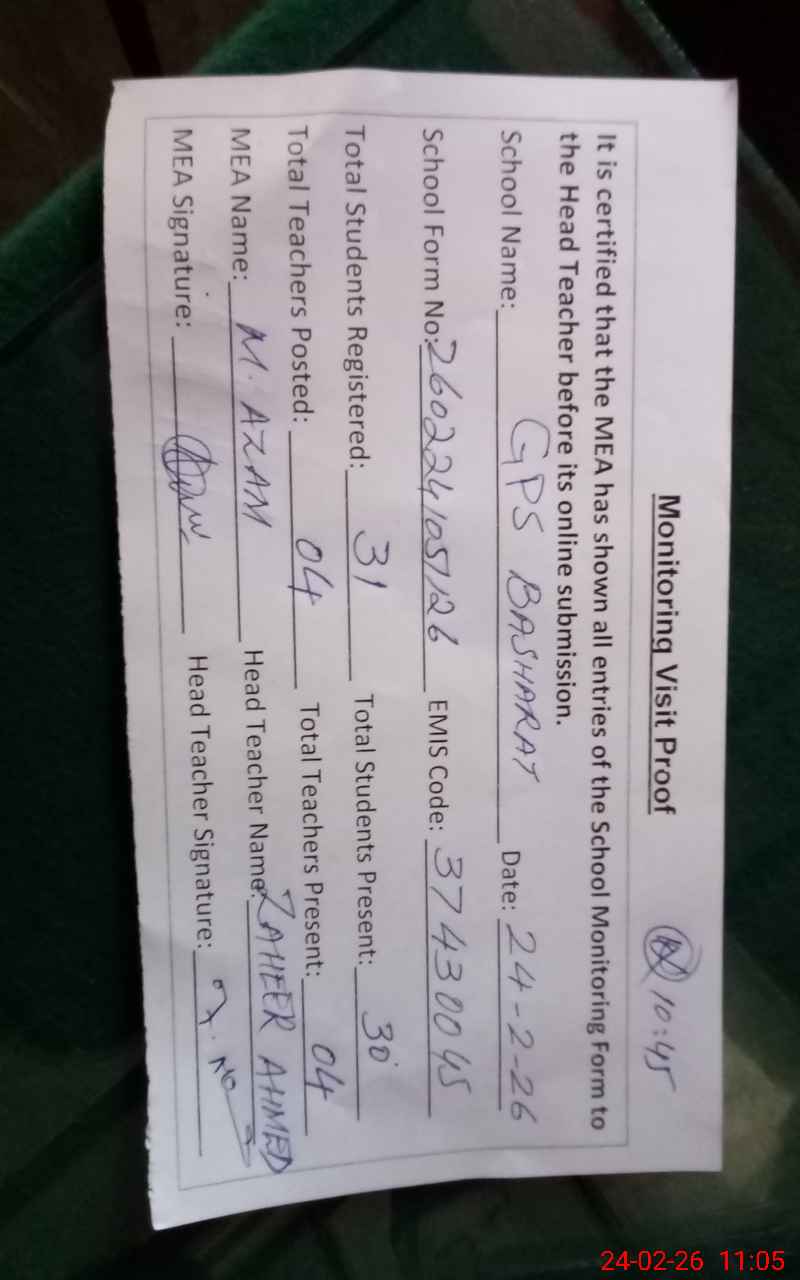 Monitoring Visit Proof 10:45
It is certified that the MEA has shown all entries of the School Monitoring Form to
the Head Teacher before its online submission.
School Name: GPS BASHARAT Date: 24-2-26
School Form No: 2602241051126 EMIS Code: 37430045
Total Students Registered: 31 Total Students Present: 30
Total Teachers Posted: 04 Total Teachers Present: 04
MEA Name: M. AZAM Head Teacher Name: ZAHEER AHMED
MEA Signature: Head Teacher Signature:
24-02-26 11:05